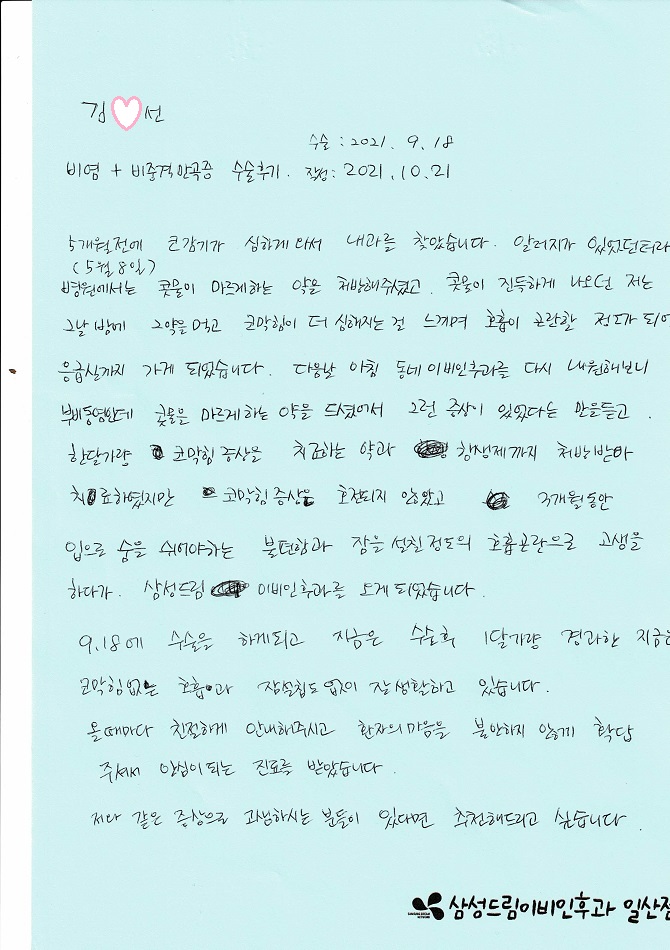 김 선
수술 : 2021. 9. 18
비염 + 비중격만곡증 수술후기. 작성: 2021.10.21
5개월전에 코감기가 심하게 와서 내과를 찾았습니다. 알러지가 있었던터라
(5월8일)
병원에서는 콧물이 마르게하는 약을 처방해주셨고. 콧물이 진득하게 나오던 저는
그날 밤에 그약을 먹고 코막힘이 더 심해지는 걸 느끼며 호흡이 곤란한 정도가 되어
응급실까지 가게 되었습니다. 다음날 아침 동네 이비인후과를 다시 내원해보니
콧물을 마르게하는 약을 드셨어서 그런 증상이 있었다는 말을듣고.
한달가량 코막힘 증상을 치료하는 약과 항생제까지 처방받아
치료하였지만 코막힘증상은 호전되지 않았고 3개월동안
입으로 숨을 쉬어야하는 불편함과 잠을 설친 정도의 호흡곤란으로 고생을
하다가. 삼성드림 이비인후과를 오게 되었습니다.
9.18에 수술을 하게되고 지금은 수술후 1달가량 경과한 지금은
코막힘없는 호흡과 잠설침도 없이 잘 생활하고 있습니다.
올때마다 친절하게 안내해주시고 환자의 마음을 불안하지 않게 확답
주셔서 안심이 되는 진료를 받았습니다.
저와 같은 증상으로 고생하시는 분들이 있다면 추천해드리고 싶습니다.
삼성드림이비인후과 일산점